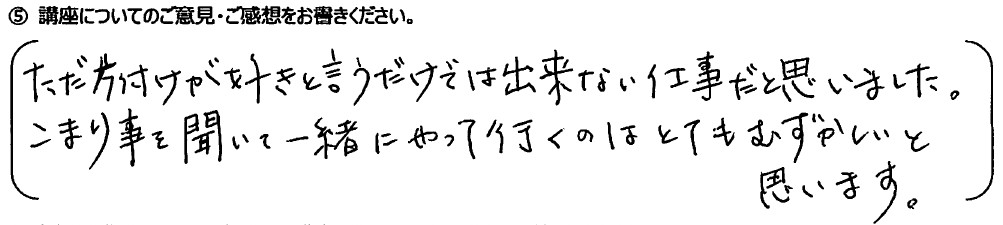 ⑤ 講座についてのご意見・ご感想をお書きください。
ただ片付けが好きと言うだけでは出来ない仕事だと思いました。
こまり事を聞いて一緒にやって行くのはとてもむずかしいと
思います。